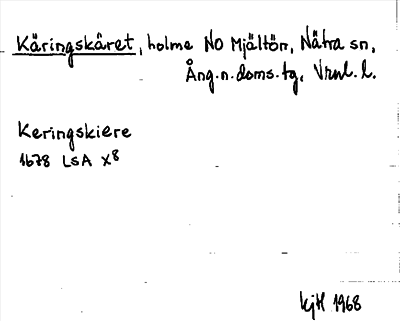 Käringskäret, holme NO Mjältön, Nätra sn,
Ång.n.doms.tg, Vrnl. l.
Keringskiere
1678 LSA X8
KjH 1968